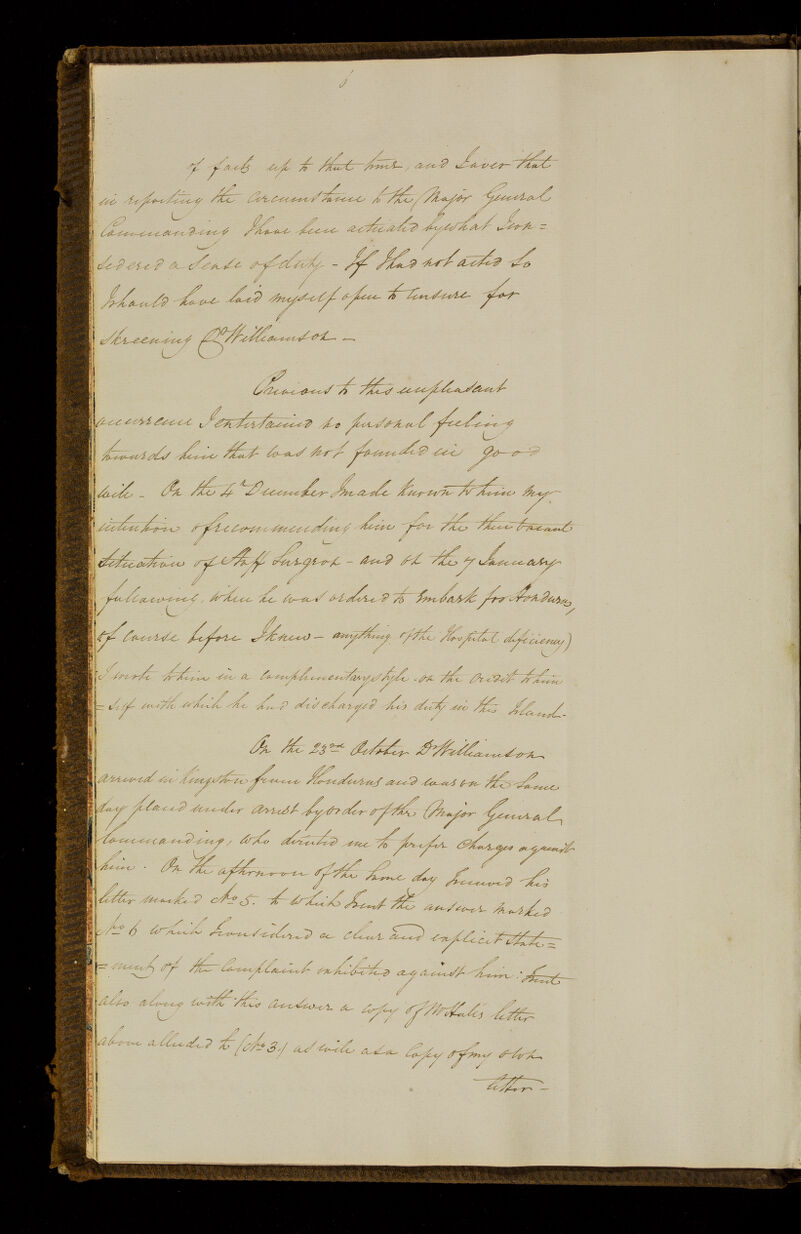 6
of facts up to that time, and I aver that
in reporting the circumstance to the Major General
Commanding I have been actuated by what I con=
sidered a Sense of duty - If I had not acted so
I should have laid myself open to censure for
skreening Dr Williamson -
Previous to this unpleasant
occurrence I entertained no personal feeling
towards him that was not founded in good
will - On the 4th December I made known to him my
intention of recommending him for the then vacant
Situation of Staff Surgeon - and on the 7 January
following, when he was ordered to embark for Honduras,
of Course before I knew - anything of the Hospital deficiency)
I wrote to him in a complimentary style - on the credit to him
=self with which he had discharged his duty in this Island -
On the 23rd October Dr Williamson
arrived in Kingston from Honduras and was on the Same
day placed under arrest by order of the Major General
Commanding, who directed me to prefer Charges against
him - On the afternoon of the same day I received his
letter marked No 5. to which I sent the answer marked
No 6 which I considered a clear and explicit State=
=ment of the Complaint exhibited against him: I sent
also along with this answer a copy of Mr Hall's letter
above alluded to (No 3.) as well as a Copy of my own
letter -